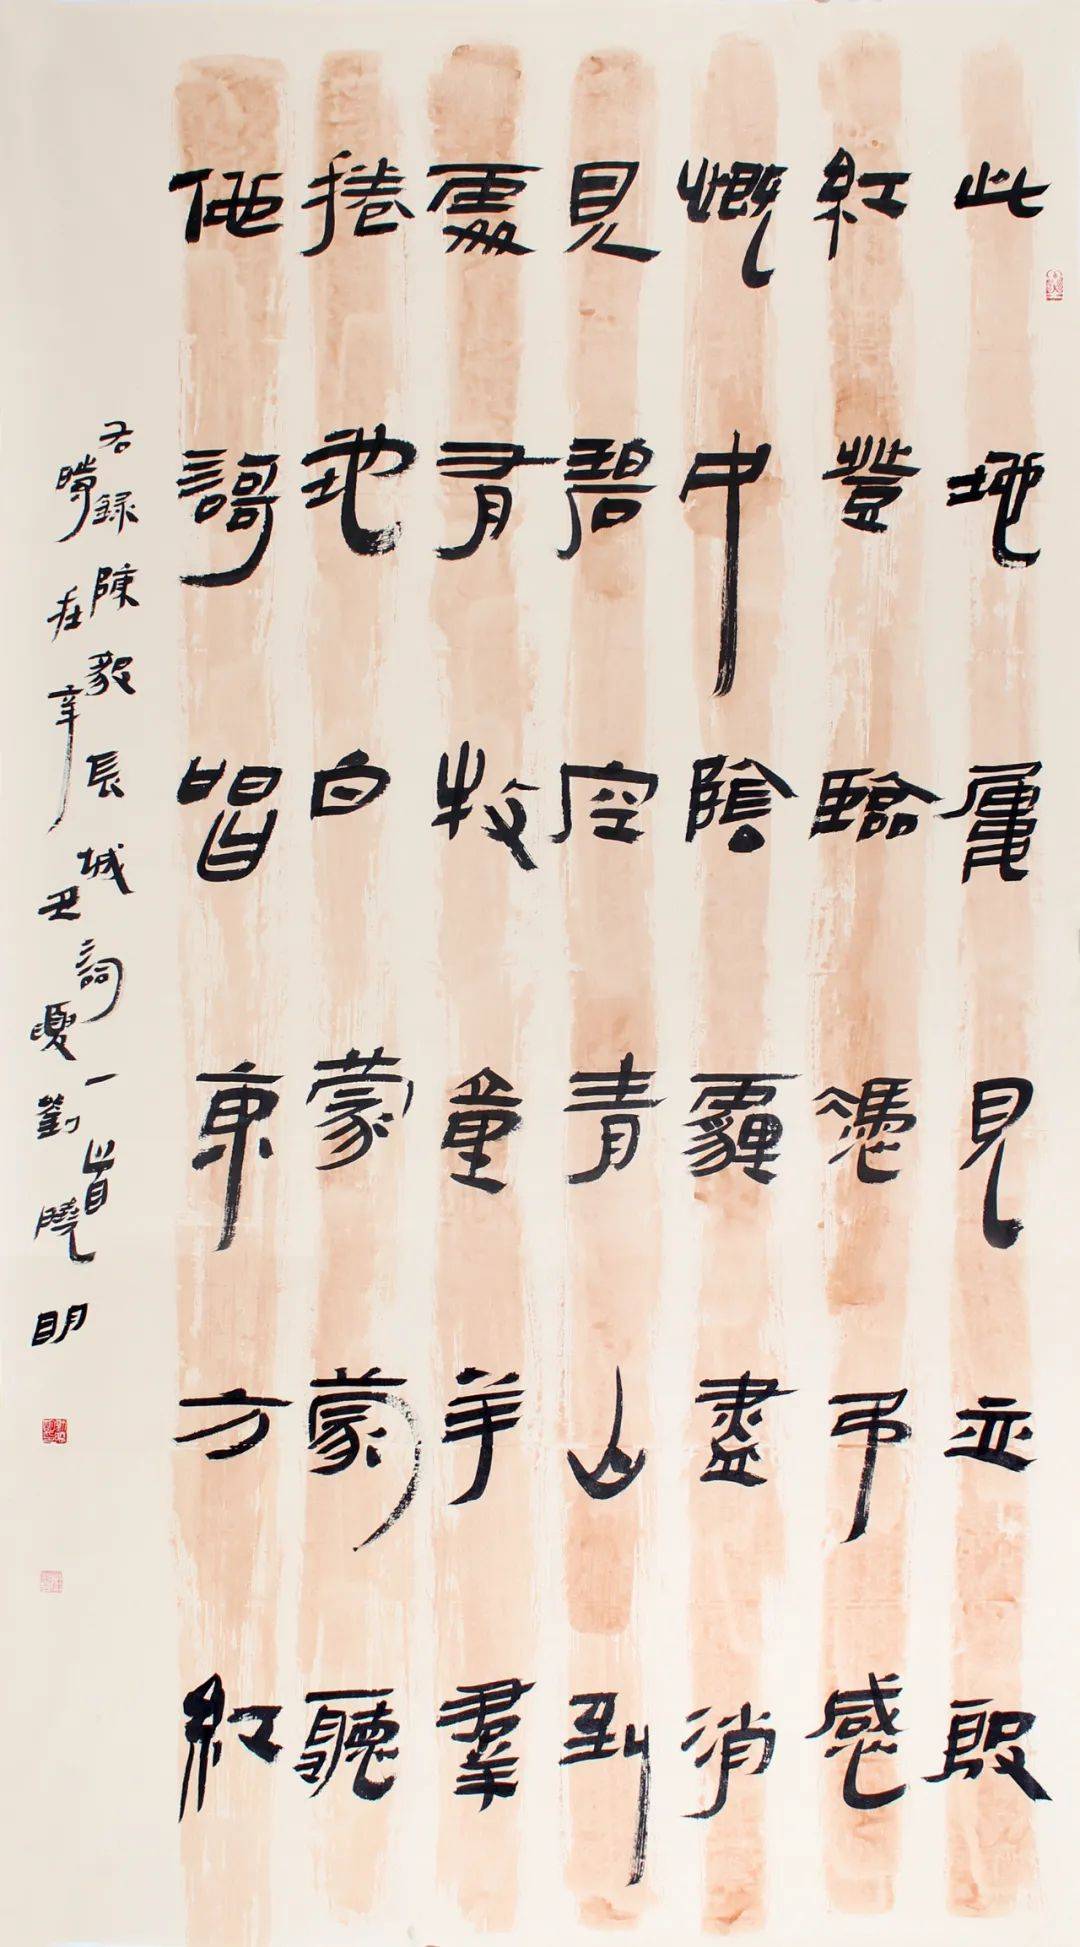 此地屢見亦殷
紅登臨憑弔感
慨中陰霾盡消
見碧空青山到
處有牧童羊羣
捲地白蒙蒙聽
他謌唱東方紅
右録陳毅長城詞一首
時在辛丑夏劉曉明